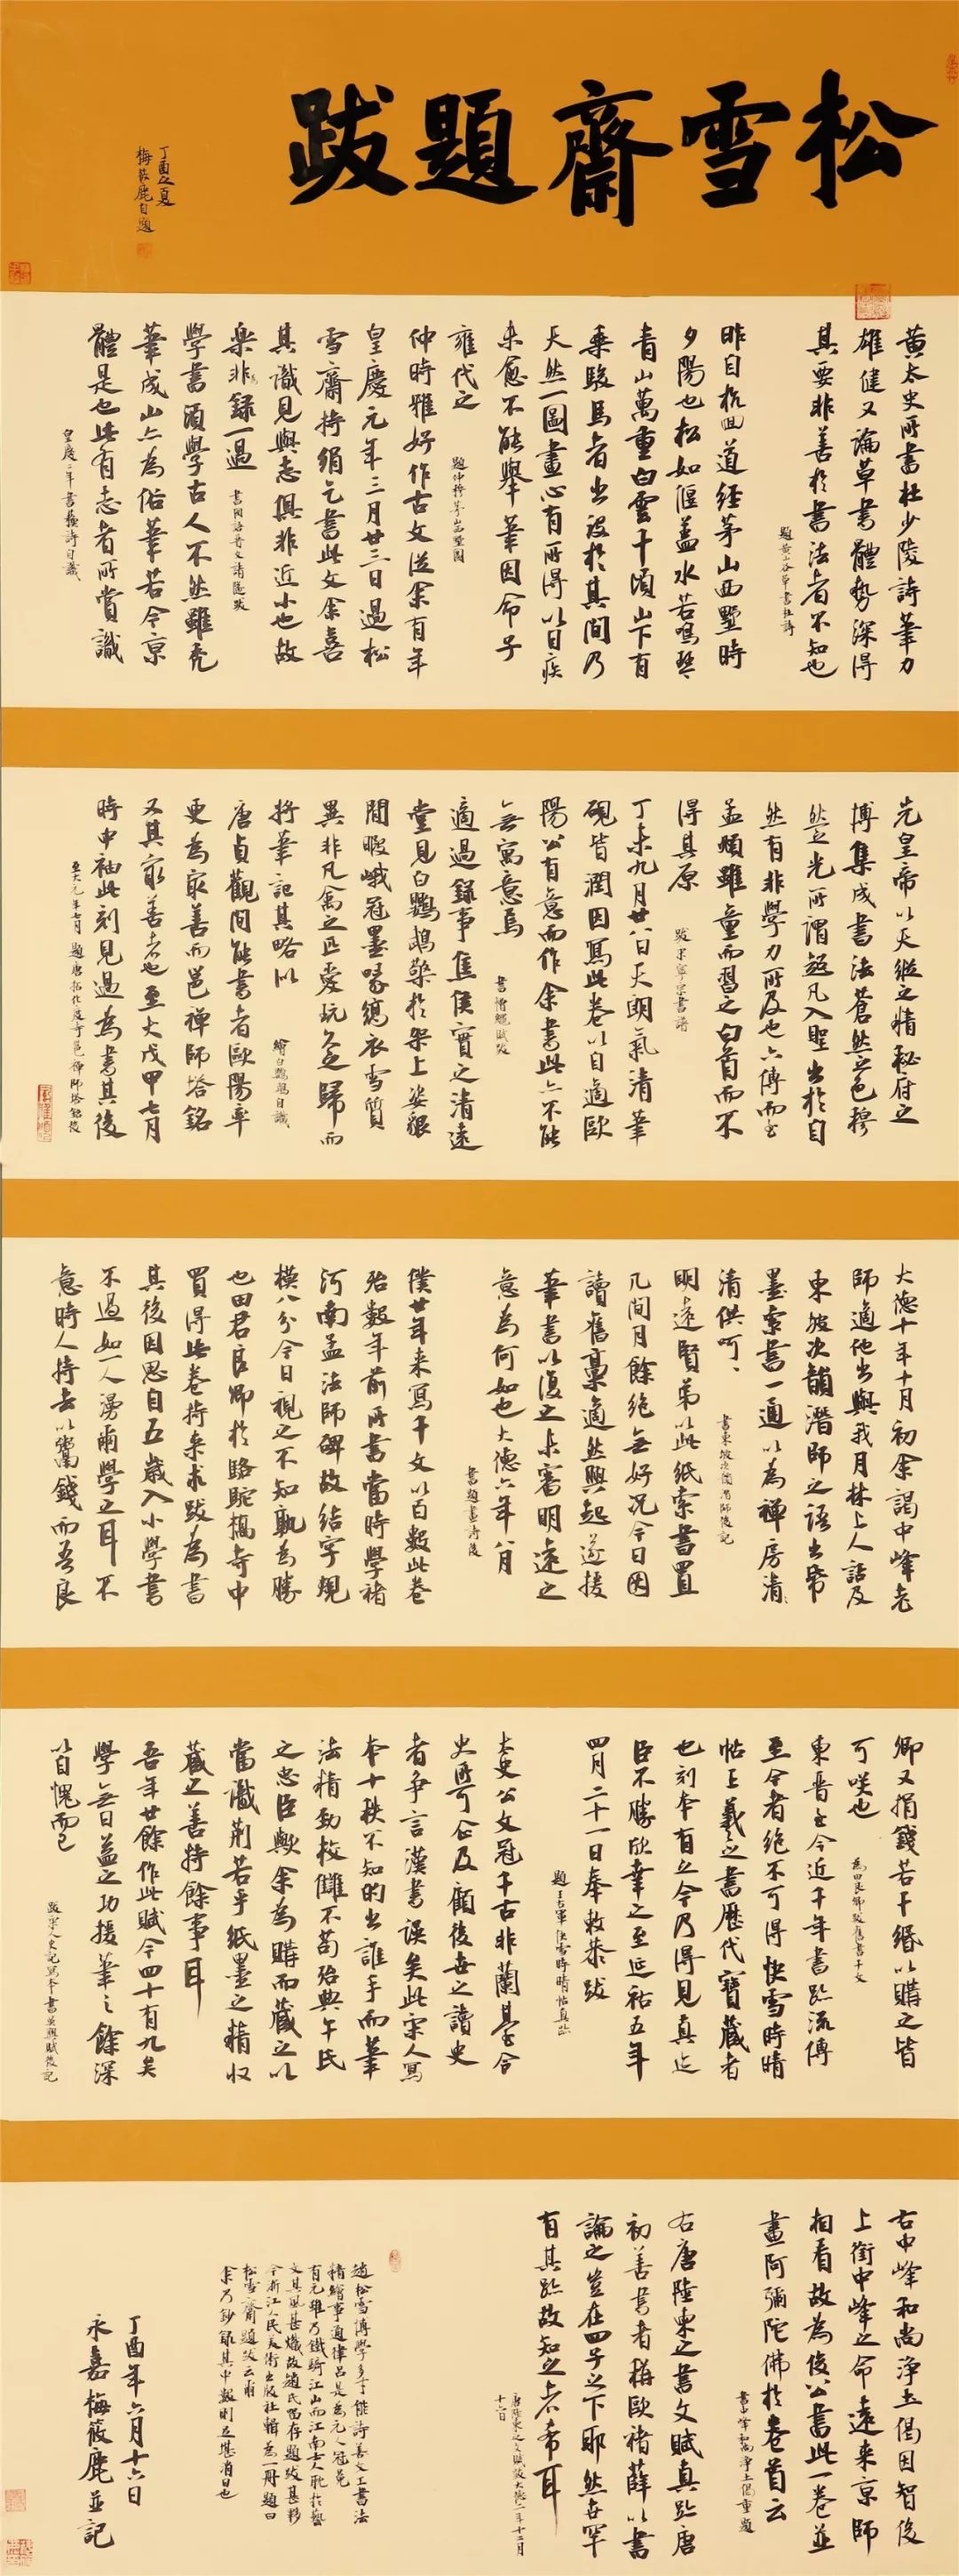 松雪齋題跋
丁酉之夏
梅筱鹿自題
黃太史所書杜少陵詩筆力
雄健又論草書體勢深得
其要非善於書法者不知也
題黃山谷草書杜詩
昨自杭回道經茅山西墅時
夕陽也松如偃蓋水若鳴琴
青山萬重白雲千頃山下有
乘駿馬者出設於其間乃
天然一圖畫心有所得以目疾
未愈不能舉筆因命子
雍代之
題仲穆茅山西墅圖
仲時雅好作古文從余有年
皇慶元年三月廿三日過松
雪齋持絹乞書此文余喜
其識見與志俱非近小也故
樂為錄一過
學書須學古人不然雖禿
筆成山亦為俗筆若今京
體是也此有志者所賞識
皇慶二年書蘇詩自識
先皇帝以天縱之精秘府之
博集成書法蒼然之色穆
然之光所謂超凡入聖出於自
然有非學力所及也
孟頫雖童而習之白首而不
得其原
跋宋寧宗書譜
丁未九月廿八日天朗氣清筆
硯皆潤因寫此卷以自適歐
陽公有意而作余書此亦不能
無寓意焉
適過錄事焦侯實之清遠
堂見白鸚鵡擎於架上姿貌
閒暇峨冠墨喙縞衣雪質
異非凡禽之匹愛玩久之歸而
將筆記其略以
繪白鸚鵡自識
唐貞觀間能書者歐陽率
更為最善而邕禪師塔銘
又其最善者也至大戊申七月
時中袖此刻見過為書其後
至大元年七月題唐拓化度寺邕禪師塔銘後
大德十年十月初余謁中峰老
師適他出與我月林上人話及
東坡次韻潛師之語出帋
墨索書一通以為禪房清
清供呵呵
書東坡次韻潛師後記
明遠賢弟以此紙索書置
几間月餘絕無好況今日因
讀舊稿適然興起遂援
筆書以復之未審明遠之
意為何如也大德六年八月
書題畫詩後
僕廿年來寫千文以百數此卷
殆數年前所書當時學褚
河南孟法師碑故結字規
模八分今日視之不知孰為勝
也田君良卿於駱駝橋市中
買得此卷持來求跋為書
其後因思自五歲入小學書
不過如人湧爾學之耳不
意時人持去以鬻錢而吾良
卿又捐錢若干緡以購之皆
可咲也
為田良卿跋舊書千文
東晉至今近千年書跡流傳
至今者絕不可得快雪時晴
帖王羲之書歷代寶藏者
也刻本有之今乃得見真跡
臣不勝欣幸之至延祐五年
四月二十一日奉敕恭跋
題王右軍快雪時晴帖真跡
太史公文冠千古非蘭臺令
史所可企及顧後世之讀史
者爭言漢書誤矣此宋人寫
本十秩不知的出誰手而筆
法精勁校讎不苟殆典午氏
之忠臣歟余為購而藏之以
當識荊若乎紙墨之精收
藏之善特餘事耳
吾年廿餘作此賦今四十有九矣
學無日益之功援筆之餘深
以自愧而已
右中峰和尚淨土偈因智俊
上街中峰之命遠來京師
相看故為俊公書此一卷並
畫阿彌陀佛於卷首云
書中峰和尚淨土偈重題
右唐陸柬之書文賦真跡唐
初善書者稱歐褚薛以書
論之豈在四子之下耶然世罕
有其跡故知之者希耳
唐陸柬之文賦跋大德二年十二月
十六日
趙松雪博學多才能詩善文工書法
精繪事通律呂是為元人冠冕
有元雖乃鐵騎江山而江南士人耽於藝
文其風甚熾故趙氏留存題跋甚夥
今浙江人民美術出版社輯為一冊題曰
松雪齋題跋云爾
余乃鈔錄其中數則
丁酉年六月十六日
永嘉梅筱鹿並記